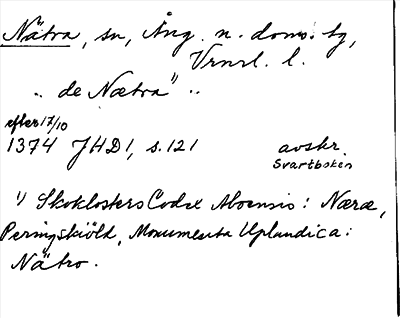 Nätra, sn, Ång. n. doms. bg,
Vrnrl. l.
.. de Nætra ¹⁾ ..
efter 17/10
1374 JHD1, s. 121 avskr.
Svartboken
¹⁾ Skoklosters Codex Aboensis: Næræ,
Peringskiöld, Monumenta Uplandica:
Nätro.